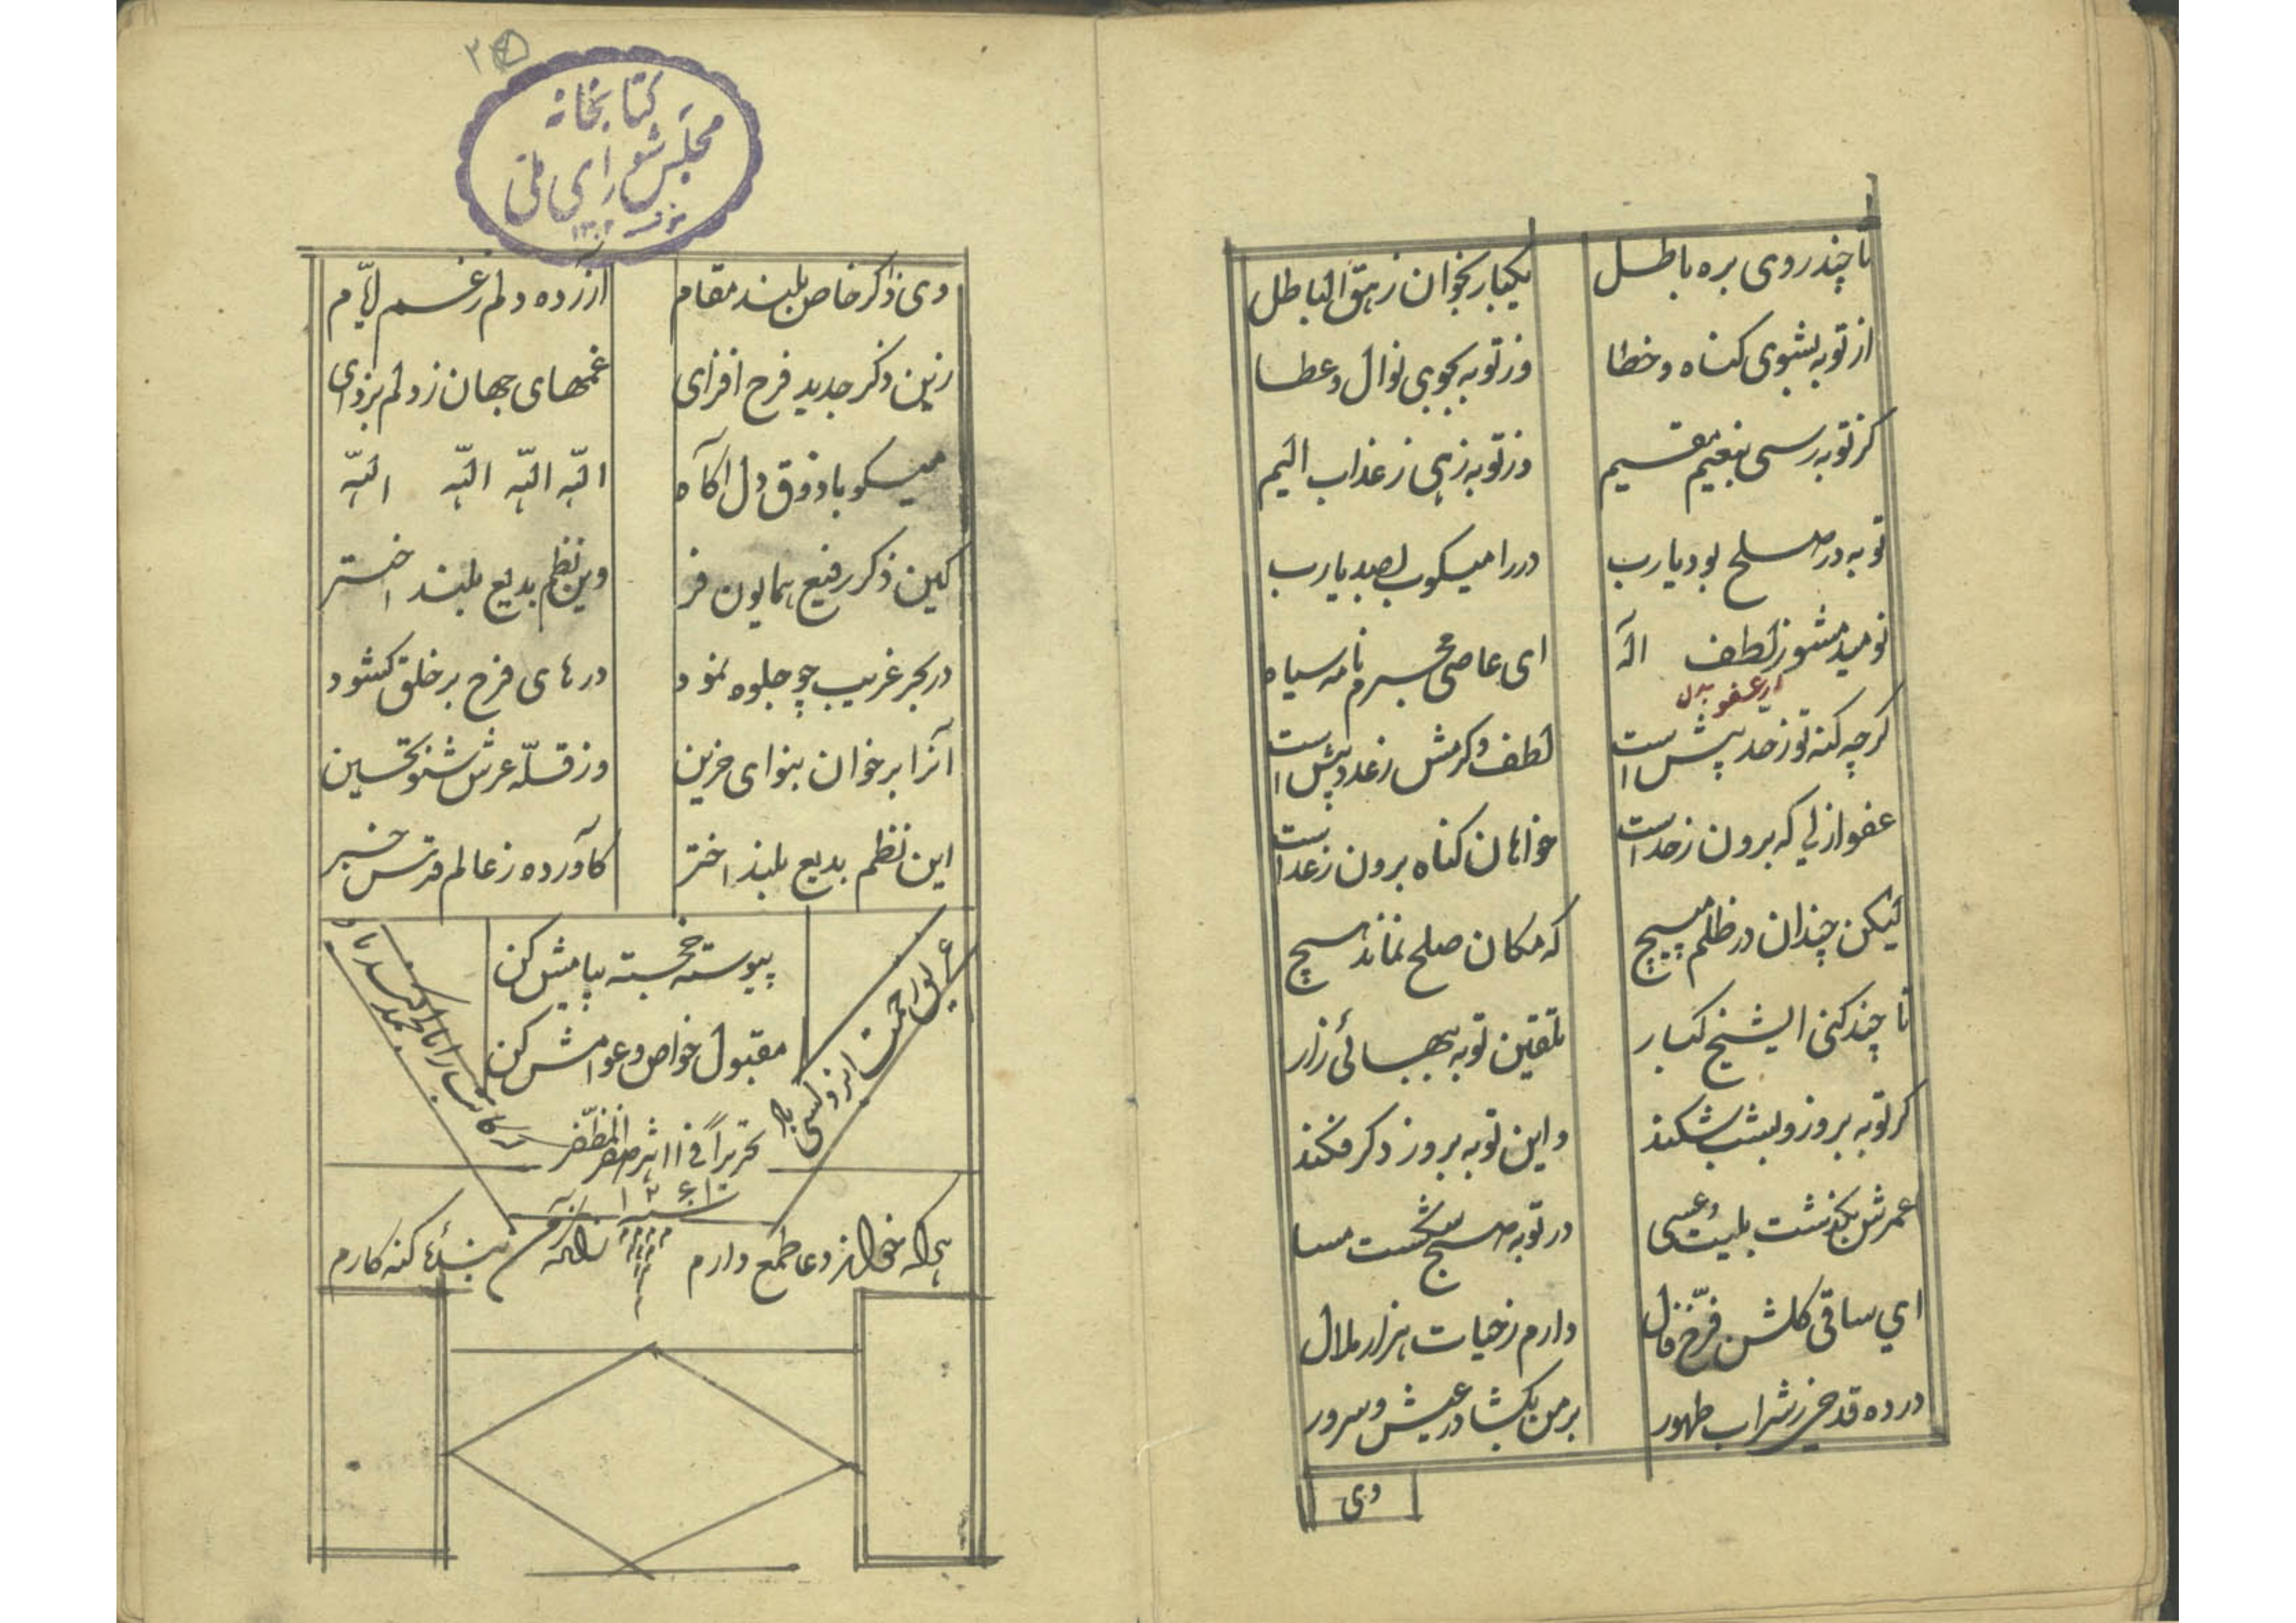 تا چند روی بره باطل یکبار بخوان زهق الباطل
از توبه بشوی کناه و خطا وز توبه بجوی نوال و عطا
کز توبه رسی بنعیم مقیم وز توبه زهی ز عذاب الیم
توبه در صلح بود یارب در را میکوب بصد یارب
نومید مشو ز لطف اله ای عاصی مجرم نامه سیاه
از عفو بدل
کرچه کنه تو ز حد پیش است لطف و کرمش ز عدد پیش است
عفو ازلی که برون ز حد است خواهان کناه برون ز عد است
لیکن چندان در ظلم مپیچ که مکان صلح نماند هیچ
تا چند کنی ایشیخ کبار تلقین توبه ببهائی زار
کر توبه بروز و بشب شکند واین توبه بروز دکر فکند
عمرش بکذشت بلیت و عسی در توبه صبح شکست مسا
ای ساقی کلشن فرّخ فال دارم ز حیات هزار ملال
درده قدحی ز شراب طهور بر من بکشا در عیش و سرور
وی
کتابخانه
مجلس شورای ملی
وی ذاکر خاص بلند مقام ازرده دلم ز غم ایام
زین ذکر جدید فرح افزای غمهای جهان ز دلم بزدای
میکو با ذوق دل اکاه الله الله الله الله
کین ذکر رفیع همایون فر وین نظم بدیع بلند اختر
در بحر غریب چو جلوه نمود درهای فرح بر خلق کشود
آنرا برخوان بنوای حزین وز قلّه عرش شنو تحسین
این نظم بدیع بلند اختر کاورده ز عالم قدس خبر
پیوسته خجسته پیامش کن
مقبول خواص و عوامش کن
غریق رحمت ایزد کسی باد
که کاتب را بالحمدی کند یاد
تحریراً فی ۱۱ شهر صفر المظفر
سنه ۱۲۶۱
هرکه خواند دعا طمع دارم زانکه من بندهٔ کنه کارم